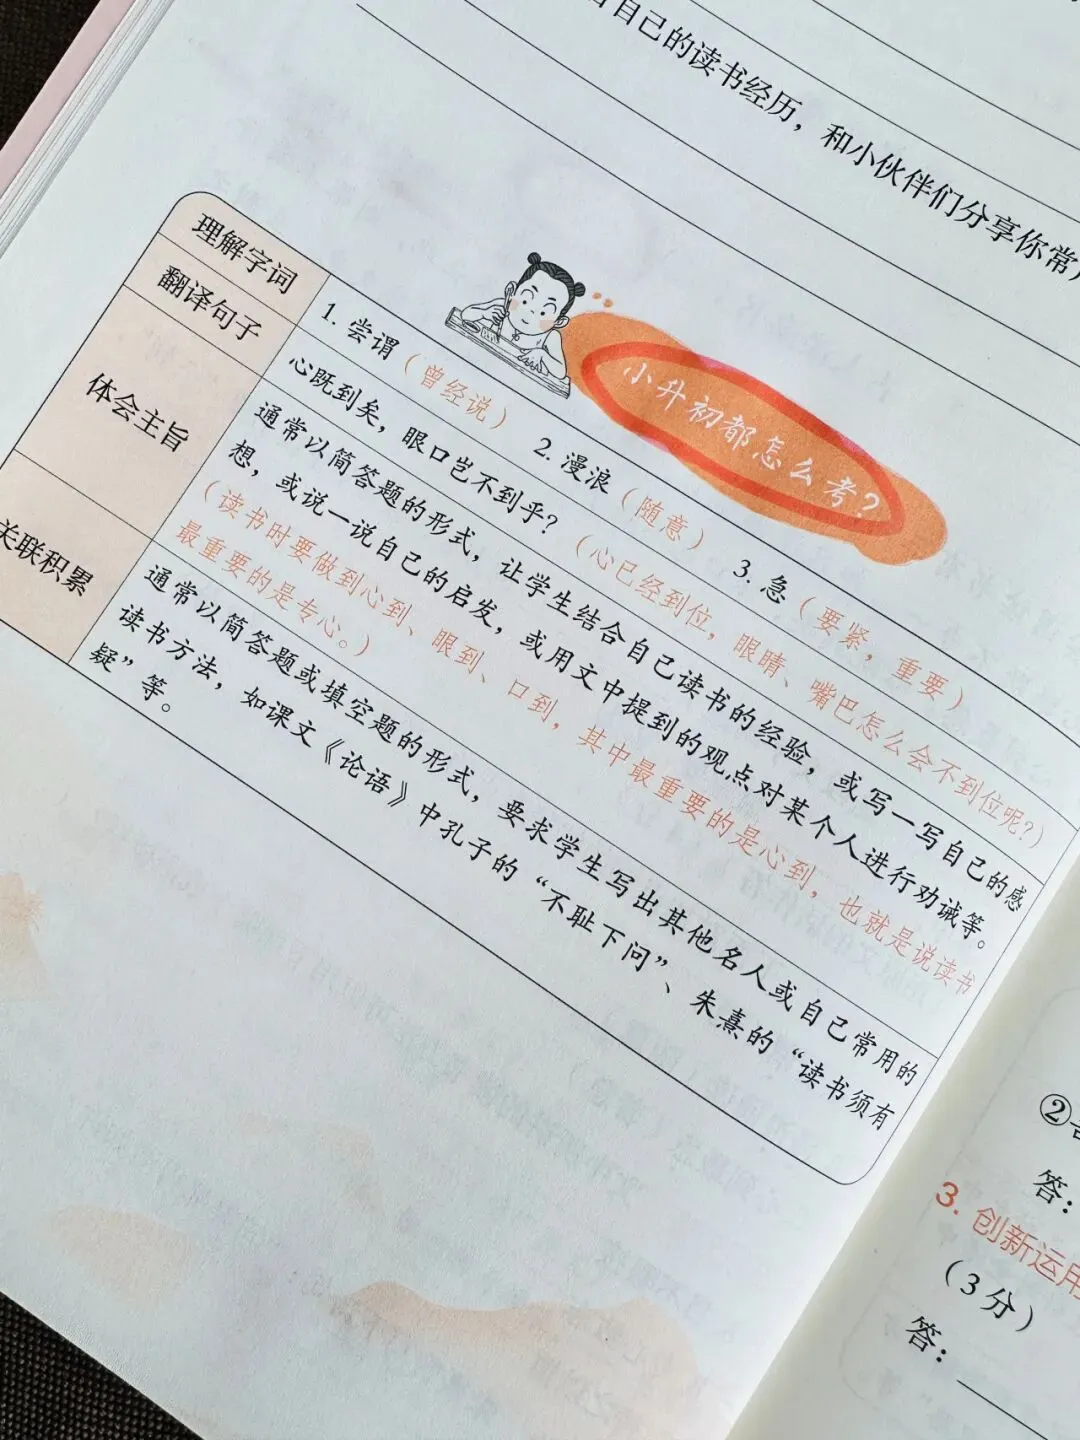 自己的读书经历，和小伙伴们分享你常
小升初都怎么考？
理解字词
1. 尝谓（曾经说） 2. 漫浪（随意） 3. 急（要紧，重要）
翻译句子
心既到矣，眼口岂不到乎？（心已经到位，眼睛、嘴巴怎么会不到位呢？）
体会主旨
通常以简答题的形式，让学生结合自己读书的经验，或写一写自己的感
想，或说一说自己的启发，或用文中提到的观点对某个人进行劝诫等。
（读书时要做到心到、眼到、口到，其中最重要的是心到，也就是说读书
最重要的是专心。）
关联积累
通常以简答题或填空题的形式，要求学生写出其他名人或自己常用的
读书方法，如课文《论语》中孔子的“不耻下问”、朱熹的“读书须有
疑”等。
②
答：
3. 创新运用
（3分）
答：